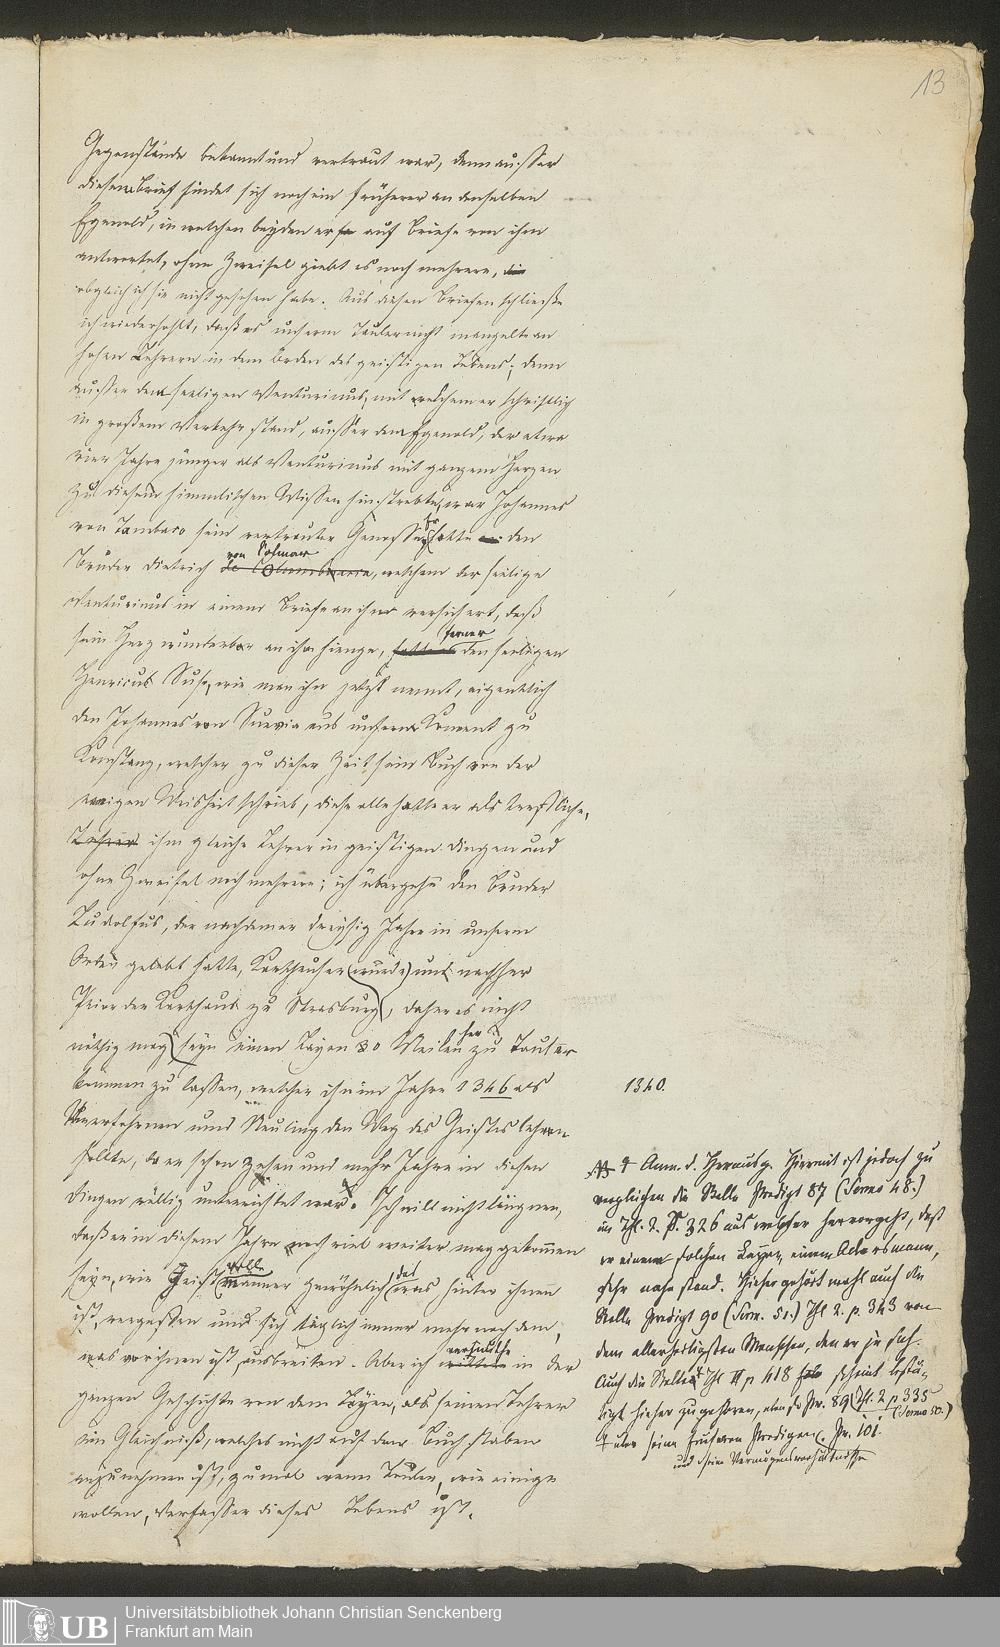 13
Gegenstände bekannt und vertraut war, denn ausser
diesem Brief findet sich noch ein früherer an denselben
Egenold, in welchen beyden er auf Briefe von ihm
antwortet, ohne Zweifel giebt es noch mehrere, die
obgleich ich sie nicht gesehen habe. Aus diesen Briefen schließe
ich wiederhohlt, daß es unserm Tauler nicht mangelte an
hohen Lehrern in dem Orden des geistigen Lebens; denn
ausser dem seeligen Venturinus, mit welchem er schriftlich
in großem Verkehr stand, ausser dem Egenold, der etwa
vier Jahre jünger als Venturinus mit ganzem Herzen
zu diesem himmlischen Wissen hinstrebte, war Johannes
von Tambaco sein vertrauter Genosse, Er hatte den
Bruder Dietrich de Columbaria, welchem der seelige
von Colmar
Venturinus in einem Briefe an ihn versichert, daß
sein Herz wunderbar an ihm hienge, ferner den seeligen
Henricus Suso, wie man ihn jetzt nennt, eigentlich
den Johannes von Suevia aus unserm Konvent zu
Konstanz, welcher zu dieser Zeit sein Buch von der
ewigen Weisheit schrieb, diese alle hatte er als treffliche,
Lehrer ihm gleiche Lehrer in geistigen Dingen und
ohne Zweifel noch mehrere; ich übergehe den Bruder
Ludolfus, der nachdem er dreyßig Jahre in unserm
Orden gelebt hatte, Karthäuser (wurde) und nachher
Prior der Karthaus zu Strasburg, daher es nicht
nöthig mag seyn einen Layen 30 Meilen her zu Tauler
kommen zu lassen, welcher ihn im Jahre 1346 als
1340.
Unerfahrnen und Neuling den Weg des Geistes lehren
sollte, da er schon zehen und mehr Jahre in diesen
Dingen völlig unterrichtet war. Ich will nicht läugnen,
daß er in diesem Jahre noch viel weiter mag gekommen
seyn, wie Geistvolle Männer gewöhnlich das was hinter ihnen
ist, vergessen und sich täglich immer mehr nach dem,
was vor ihnen ist, ausbreiten. Aber ich vermuthe in der
ganzen Geschichte von dem Layen, als seinem Lehrer
ein Gleichniß, welches nicht auf den Buchstaben
anzunehmen ist, zumal wenn Tauler, wie einige
wollen, Verfasser dieses Lebens ist.
Anm. d. Herausg. Hiermit ist jedoch zu
vergleichen die Stelle Predigt 87 (Sermo 48.)
im Thl. 2. S. 326 aus welcher hervorgeht, daß
er einem solchen Layen, einem Ackersmann,
sehr nahe stand. Hieher gehört wohl auch die
Stelle Predigt 90 (Serm. 51.) Thl 2. p. 343 von
dem allerheiligsten Menschen, den er je sah.
Auch die Stelle Thl II p 418 scheint bestä-
tigt hieher zu gehören, eben so Pr. 89 Thl. 2 p 335
(Sermo 50.)
über seine Predigen Pr. 101.
und seine Vermögensverhältnisse
UB
Universitätsbibliothek Johann Christian Senckenberg
Frankfurt am Main